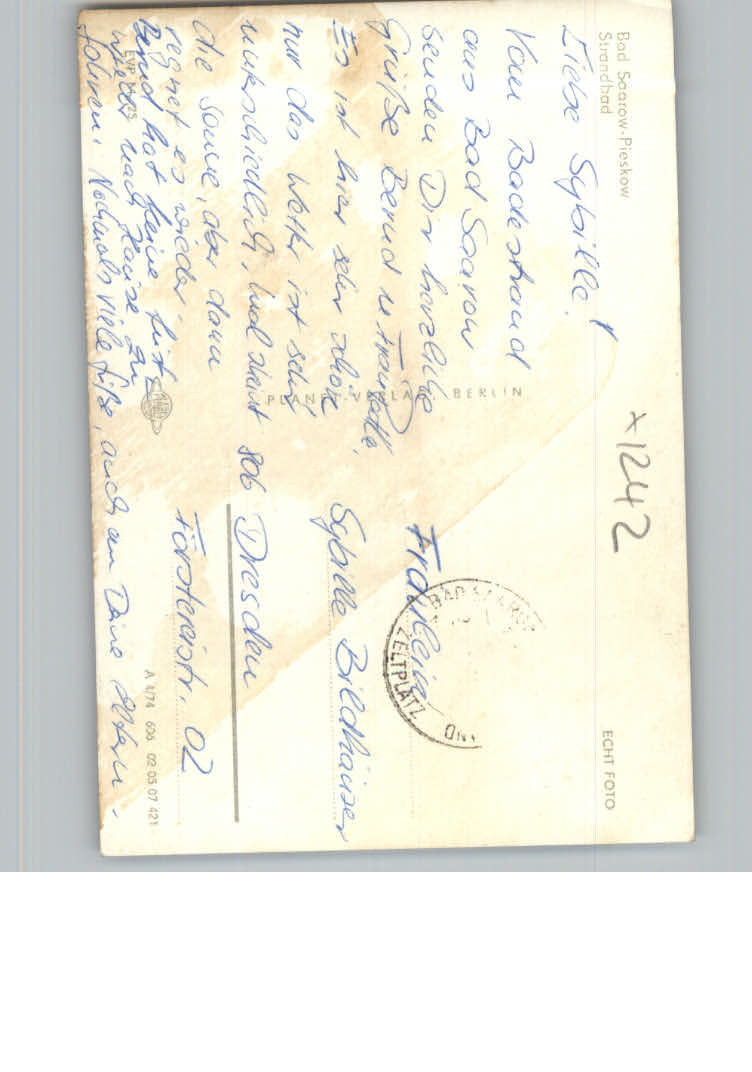 Bad Saarow-Pieskow
Strandbad
Liebe Sybille!
Vom Badestrand
aus Bad Saarow
senden Dir herzliche
Grüße Bernd u.
Es ist hier sehr schön
nur das Wetter ist sehr
unterschiedlich, mal scheint
die Sonne, aber dann
regnet es wieder.
Bernd hat keine Lust
wieder nach Hause zu
fahren. Nochmals viele Grüße, auch an Deine Eltern.
EVP M
PLANET-VERLAG, BERLIN
x1242
ECHT FOTO
BAD SAAROW
ZELTPLATZ
Fräulein
Sybille Bildhäuser
806 Dresden
Förstereistr. 02
A 4/74 606 02 05 07 421